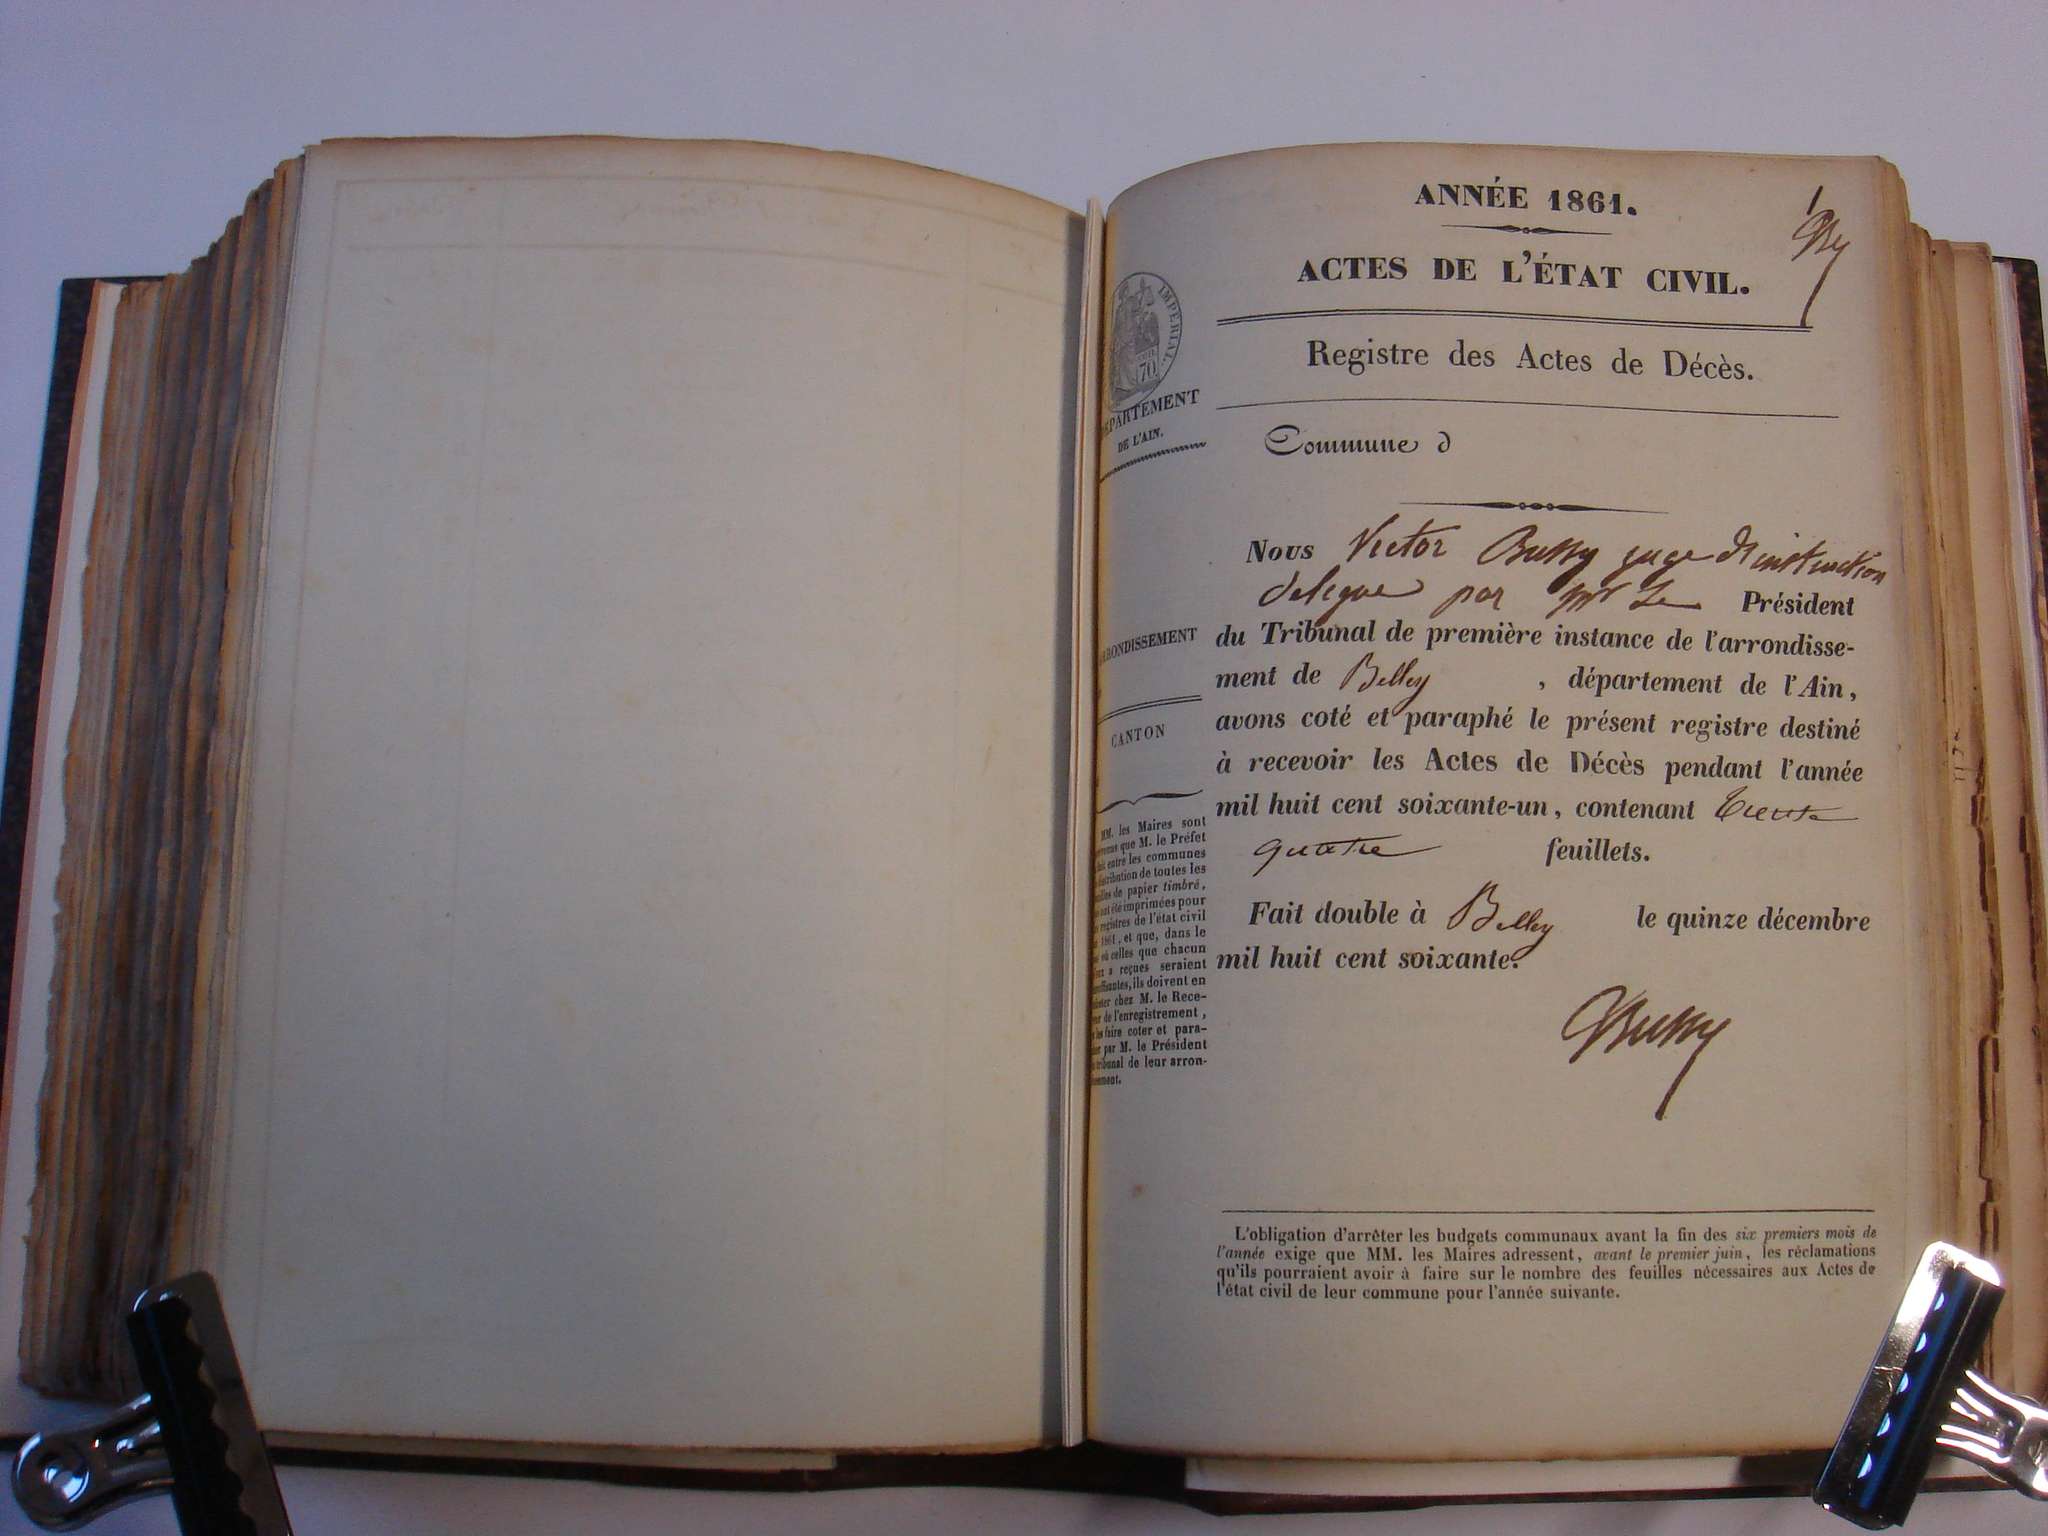 ANNÉE 1861.
1
ACTES DE L'ÉTAT CIVIL.
IMPÉRIAL.
70
Registre des Actes de Décès.
DÉPARTEMENT
DE L'AIN.
Commune d
Nous Victor Bussy juge d'instruction
délégué par Mr Le Président
du Tribunal de première instance de l'arrondisse-
ment de Belley , département de l'Ain,
avons coté et paraphé le présent registre destiné
à recevoir les Actes de Décès pendant l'année
mil huit cent soixante-un, contenant trente
quatre feuillets.
Fait double à Belley le quinze décembre
mil huit cent soixante.
Bussy
ARRONDISSEMENT
CANTON
MM. les Maires sont
que M. le Préfet
entre les communes
distribution de toutes les
de papier timbré,
ont été imprimées pour
registres de l'état civil
1861, et que, dans le
où celles que chacun
a reçues seraient
insuffisantes, ils doivent en
chez M. le Rece-
de l'enregistrement,
les faire coter et para-
par M. le Président
tribunal de leur arron-
L'obligation d'arrêter les budgets communaux avant la fin des six premiers mois de
l'année exige que MM. les Maires adressent, avant le premier juin, les réclamations
qu'ils pourraient avoir à faire sur le nombre des feuilles nécessaires aux Actes de
l'état civil de leur commune pour l'année suivante.